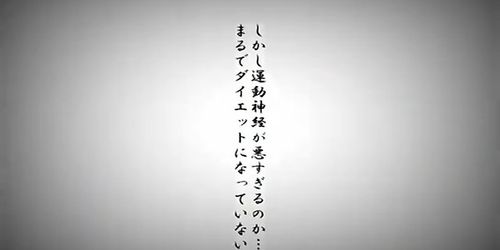 しかし運動神経が悪すぎるのか…
まるでダイエットになっていない